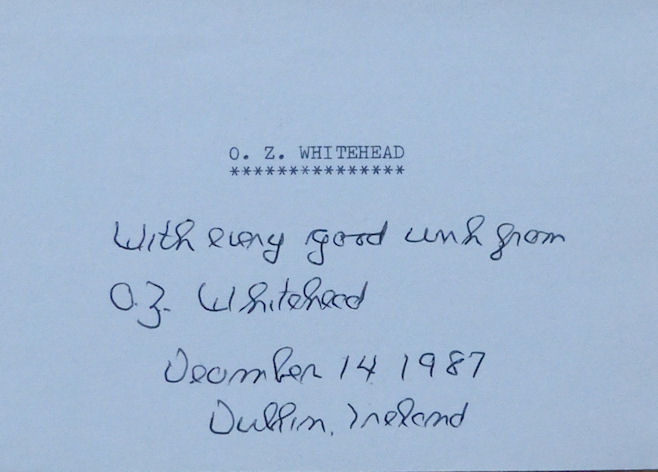 O. Z. WHITEHEAD
***************
With every good wish from
O.Z. Whitehead
December 14 1987
Dublin, Ireland